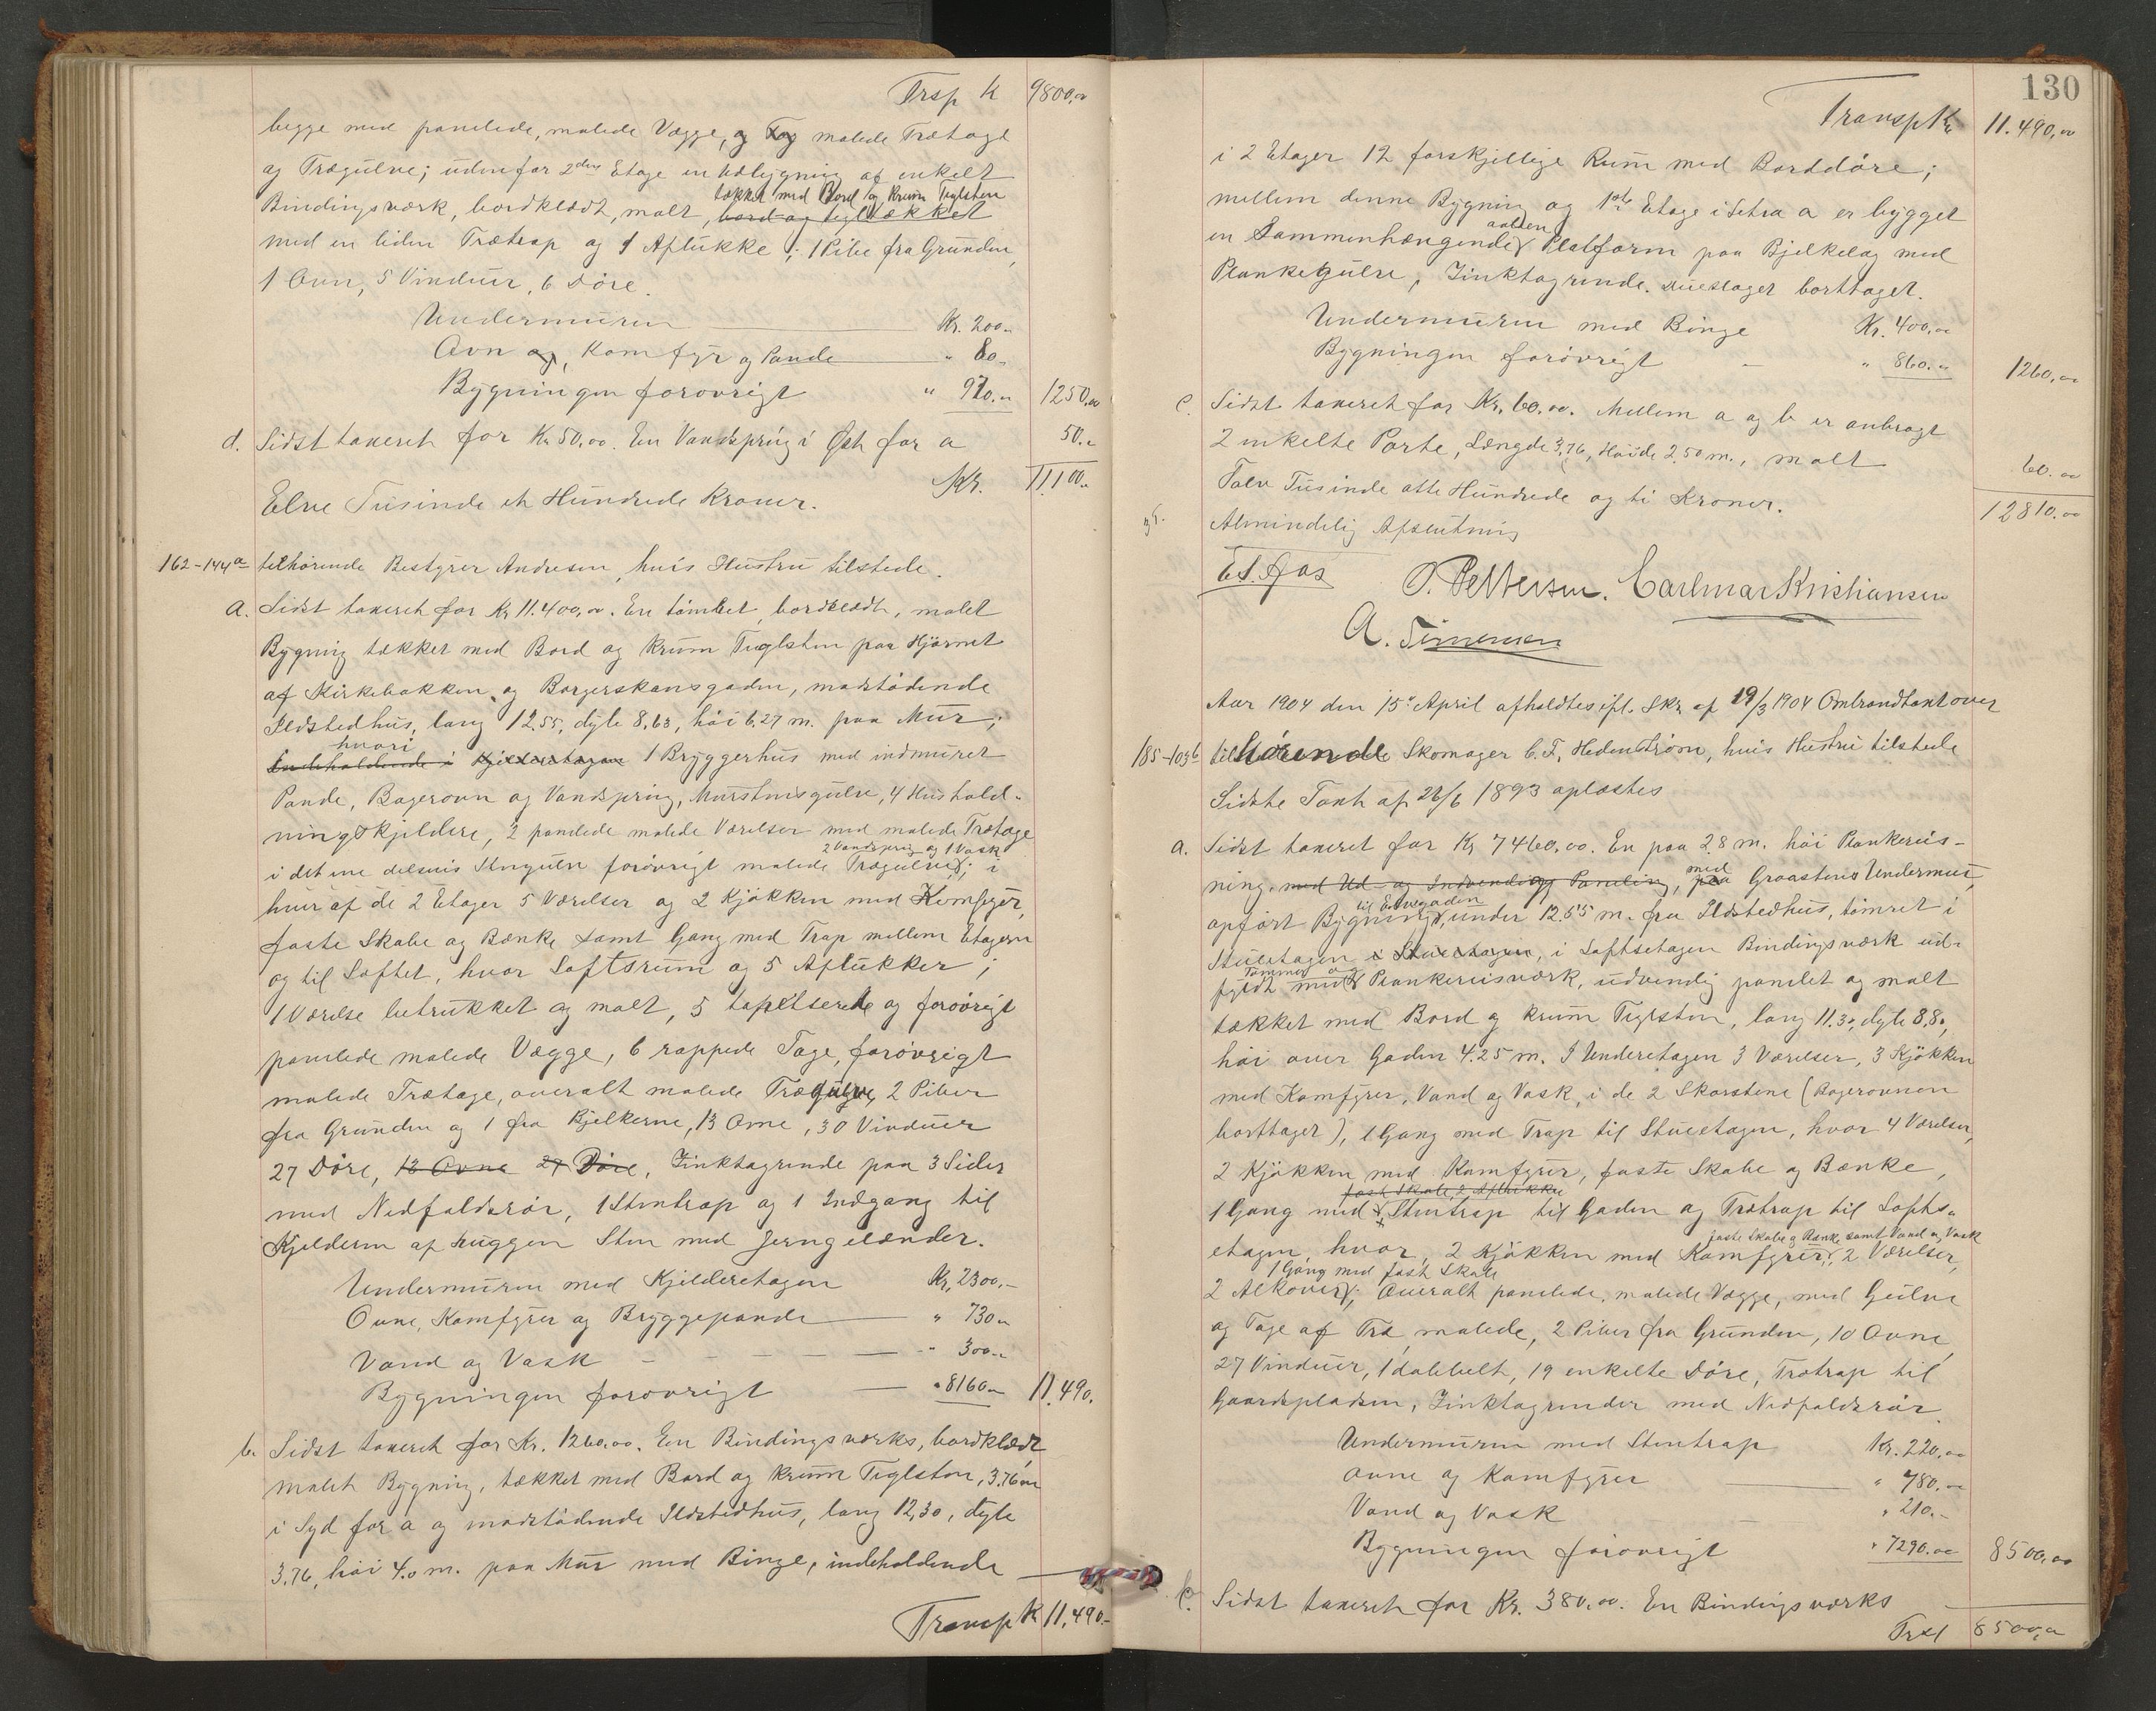 Trsp K 9800,00
begge med panelede, malede Vægge, og Tag malede Trætage
og Trægulve; udenfor 2den Etage en Udbygning af enkelt
tækket med Bord og krum Teglsten
Bindingsværk, bordklædt, malt, bord og tegltækket
med en liden Trætrap og 1 Aflukke; 1 Pibe fra Grunden,
1 Ovn, 5 Vinduer, 6 Døre.
Undermuren Kr. 200.-
Ovn og, Komfyr og Pande " 80.-
Bygningen forøvrigt " 970.- 1250,00
d. Sidst taxeret for Kr 50,00. En Vandspring i Øst for a 50.-
Kr. 11.100.-
Elve Tusinde et Hundrede Kroner.
162-144a tilhørende Bestyrer Andresen, hvis Hustru tilstede.
a. Sidst taxeret for Kr 11.400,00. En tømret, bordklædt, malet
Bygning tækket med Bord og krum Teglsten paa Hjørnet
af Kirkebakken og Borgerskansgaden, modstødende
Ildstedhus, lang 12.55, dyb 8.63, høi 6.27 m. paa Mur;
hvori
Indeholdende i Kjelderetagen 1 Bryggerhus med indmuret
Pande, Bagerovn og Vandspring, Murstensgulve, 4 Hushold-
ningskjeldere, 2 panelede malede Værelser med malede Trætage
2 Vandspring og 1 Vask
i det ene delsvis Stengulv forøvrigt malede Trægulve; i
hver af de 2 Etager 5 Værelser og 2 Kjøkken med Komfyrer,
faste Skabe og Bænke samt Gang med Trap mellem Etagerne
og til Loftet, hvor Loftsrum og 5 Aflukker;
1 Værelse betrukket og malt, 5 tapetserede og forøvrigt
panelede malede Vægge, 6 rappede Tage, forøvrigt
malede Trætage, overalt malede Trægulve, 2 Piber
fra Grunden og 1 fra Bjelkerne, 13 Ovne, 30 Vinduer
27 Døre, 13 Ovne 27 Døre, Zinktagrende paa 3 Sider
med Nedfaldsrør, 1 Stentrap og 1 Indgang til
Kjelderen af huggen Sten med Jerngelænder.
Undermuren med Kjelderetagen Kr. 2300.-
Ovne, Komfyrer og Bryggepande " 730.-
Vand og Vask " 300.-
Bygningen forøvrigt " 8160.- 11.490.
b. Sidst taxeret for Kr. 1260.00. En Bindingsværks, bordklædt,
malet Bygning, tækket med Bord og krum Teglsten, 3.76 m
i Syd for a og modstødende Ildstedhus, lang 12,30, dyb
3.76, høi 4.0 m. paa Mur med Binge, indeholdende
Transp K 11,490.-
130
Transp Kr 11.490,00
i 2 Etager 12 forskjellige Rum med Borddøre;
mellem denne Bygning og 1ste Etage i Litra a er bygget
aaben
en Sammenhængende Platform paa Bjelkelag med
Plankegulve, Zinktagrende. Dueslaget borttaget.
Undermuren med Binge Kr. 400,00
Bygningen forøvrigt - " 860.00 1260,00
c. Sidst taxeret for Kr. 60.00. Mellem a og b er anbragt
2 enkelte Porte, Længde 3.76, Høide 2.50 m., malt 60.00
Tolv Tusinde otte Hundrede og ti Kroner. 12810.00
Almindelig Afslutning
O. Pettersen. Carlmar Kristiansen
A. Simensen
Aar 1904 den 15de April afholdtes ifl. Skr. af 19/3 1904 Ombrandtaxt over
185-103b tilhørende Skomager C. F. Hedenstrøm, hvis Hustru tilstede
Sidste Taxt af 26/6 1893 oplæstes
a. Sidst taxeret for Kr 7460.00. En paa 2.8 m. høi Plankereis-
med
ning, med Ud- og Indvendigg Paneling, paa Graastens Undermur,
opført Bygning, under 12.55 m. fra Ildstedhus, tømret i
Stueetagen i Stueetagen, i Loftsetagen Bindingsværk ud-
Tømmer og
fyldt med Plankereisværk, udvendig panelet og malt
tækket med Bord og krum Teglsten, lang 11.30, dyb 8.80,
høi over Gaden 4.25 m. I Underetagen 3 Værelser, 3 Kjøkken
med Komfyrer, Vand og Vask, i de 2 Skorstene (Bagerovnen
borttaget), 1 Gang med Trap til Stueetagen, hvor 4 Værelser,
2 Kjøkken med Komfyrer, faste Skabe og Bænke,
fast Skabe, 2 Aflukke
1 Gang med Stentrap til Gaden og Trætrap til Lofts-
faste Skabe og Bænke samt Vand og Vask
etagen, hvor, 2 Kjøkken med Komfyrer, 2 Værelser,
1 Gang med fast Skabe
2 Alkover; Overalt panelede, malede Vægge, med Gulve
og Tage af Træ malede, 2 Piber fra Grunden, 10 Ovne,
27 Vinduer, 1 dobbelt, 19 enkelte Døre, Trætrap til
Gaardspladsen, Zinktagrender med Nedfaldsrør.
Undermuren med Stentrap Kr. 220,00
Ovne og Komfyrer " 780,00
Vand og Vask " 210.-
Bygningen forøvrigt " 7290.00 8500,00
Sidst taxeret for Kr. 380.00. En Bindingsværks
8500,00